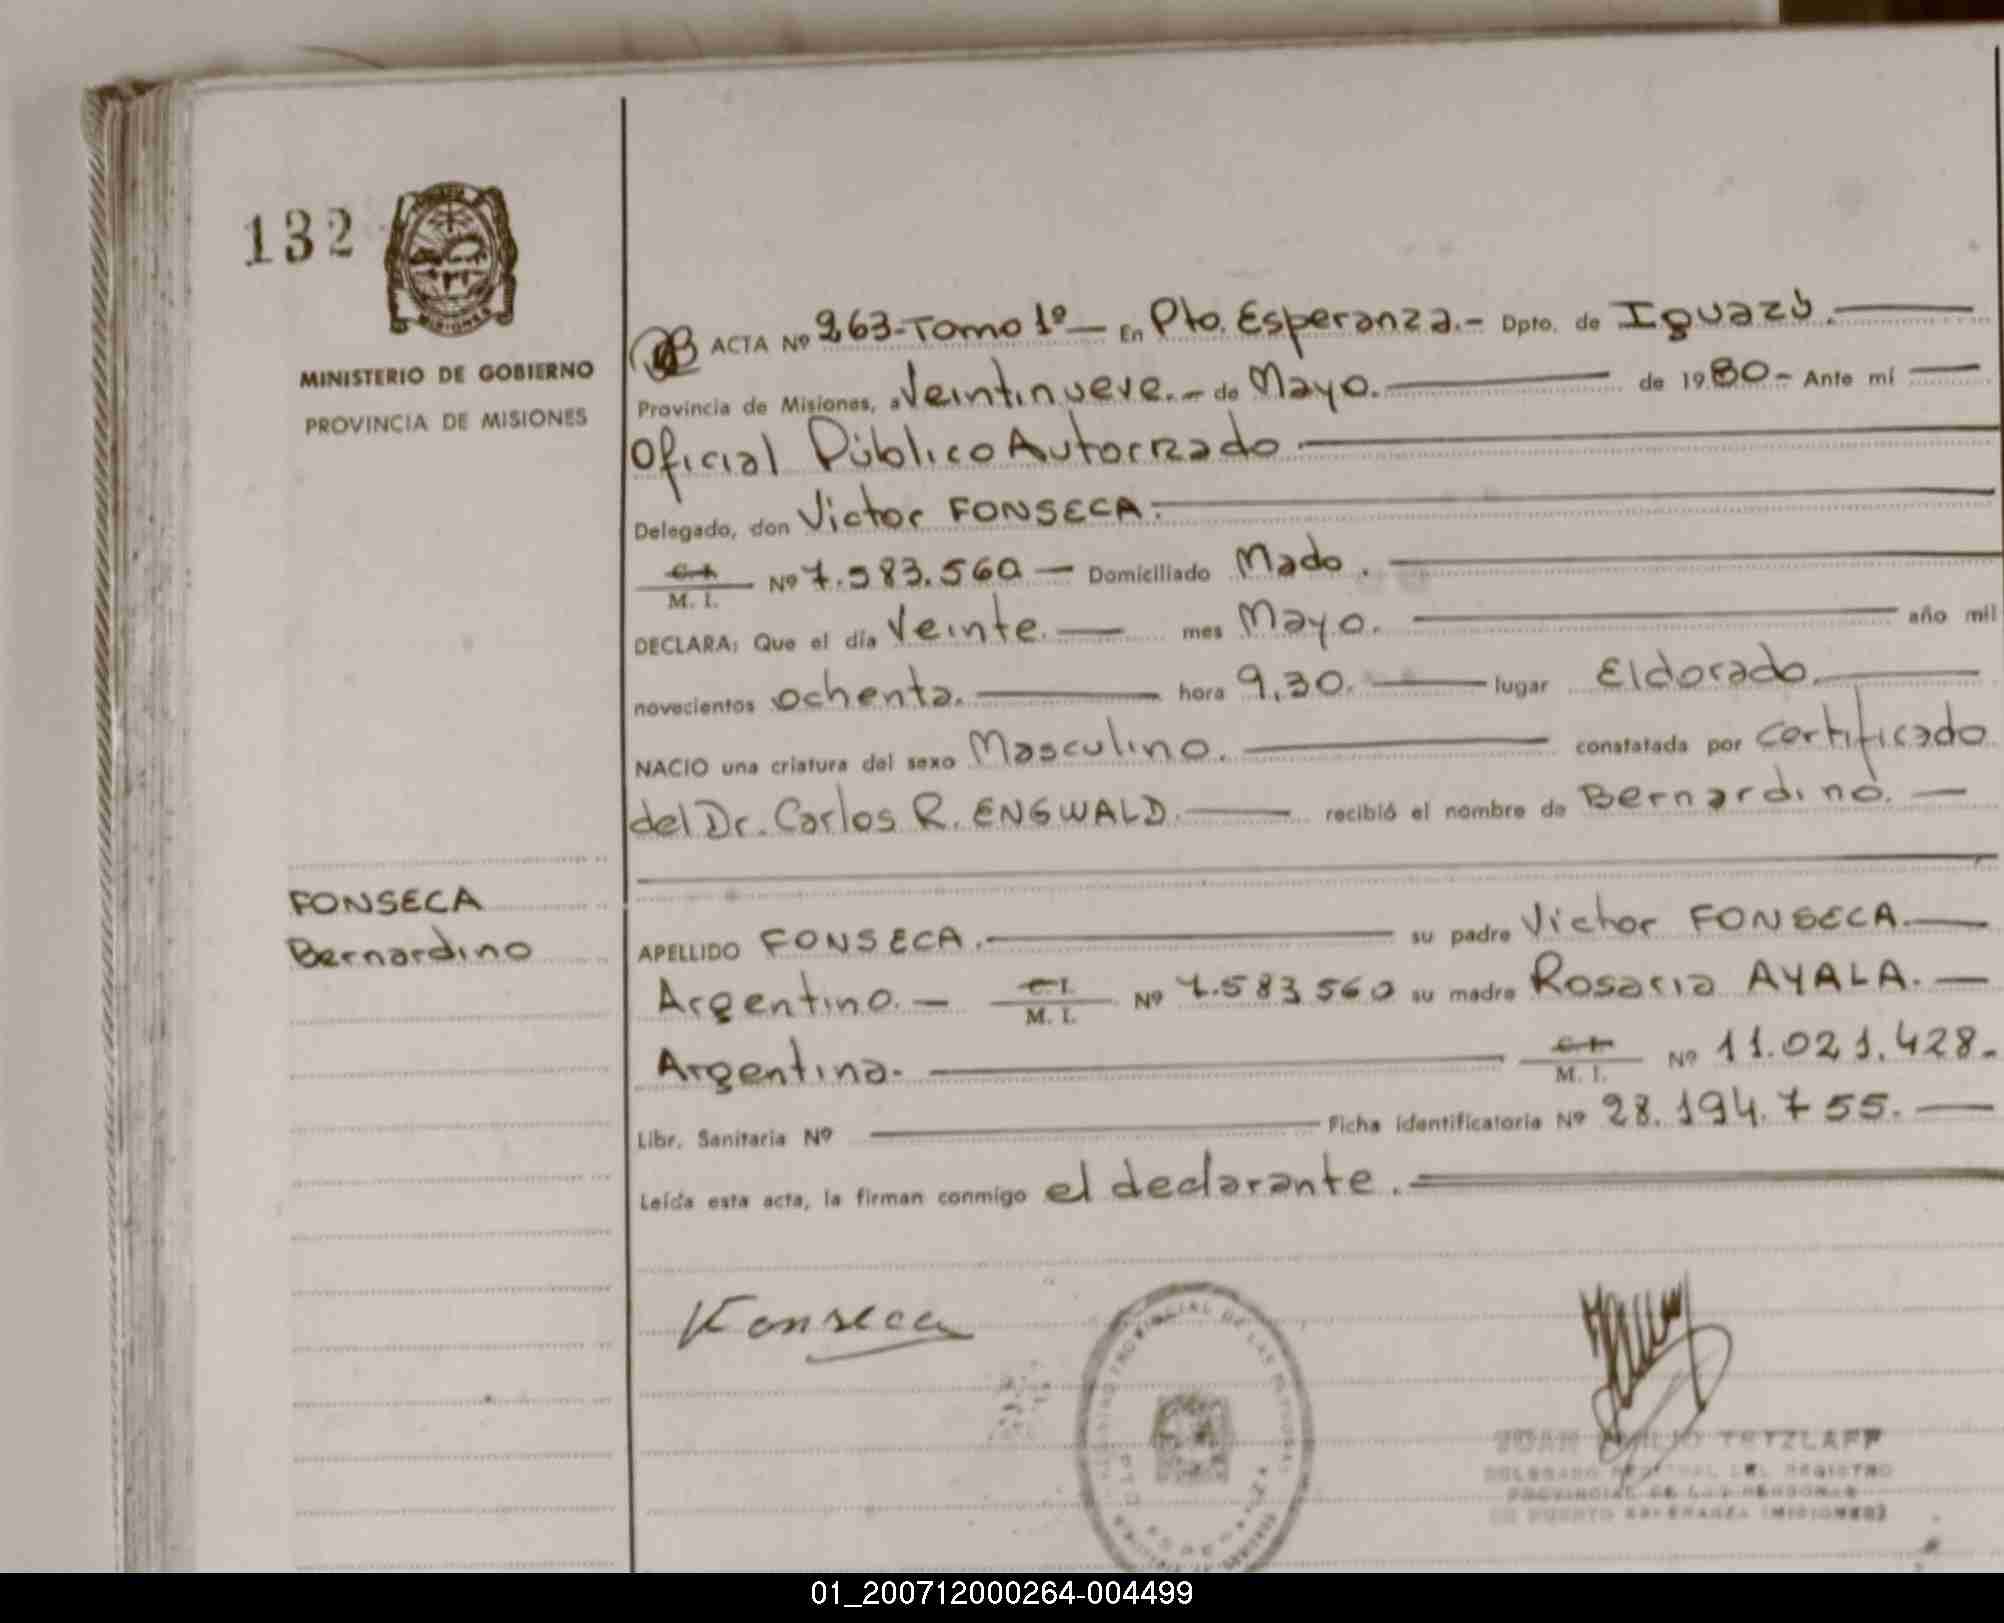 132
MISIONES
MINISTERIO DE GOBIERNO
PROVINCIA DE MISIONES
FONSECA
Bernardino
ACTA Nº 263-Tomo 1º — En Pto. Esperanza.- Dpto. de Iguazú.
Provincia de Misiones, a Veintinueve.- de Mayo. de 1980- Ante mí
Oficial Público Autorizado
Delegado, don Victor FONSECA.
C.I. M. I. Nº 7.583.560 — Domiciliado Mado.
DECLARA: Que el día Veinte. — mes Mayo. año mil
novecientos ochenta. hora 9,30. lugar Eldorado.
NACIO una criatura del sexo Masculino. constatada por Certificado
del Dr. Carlos R. ENGWALD. recibió el nombre de Bernardino. —
APELLIDO FONSECA. su padre Victor FONSECA.
Argentino. — C.I. M. I. Nº 7.583.560 su madre Rosaria AYALA. —
Argentina. C.I. M. I. Nº 11.021.428.-
Libr. Sanitaria Nº Ficha identificatoria Nº 28.194.755. —
Leída esta acta, la firman conmigo el declarante.
Fonseca
REGISTRO PROVINCIAL DE LAS PERSONAS
JUAN EMILIO TETZLAFF
DELEGADO DEL REGISTRO
PROVINCIAL DE LAS PERSONAS
DE PUERTO ESPERANZA (MISIONES)
01_200712000264-004499